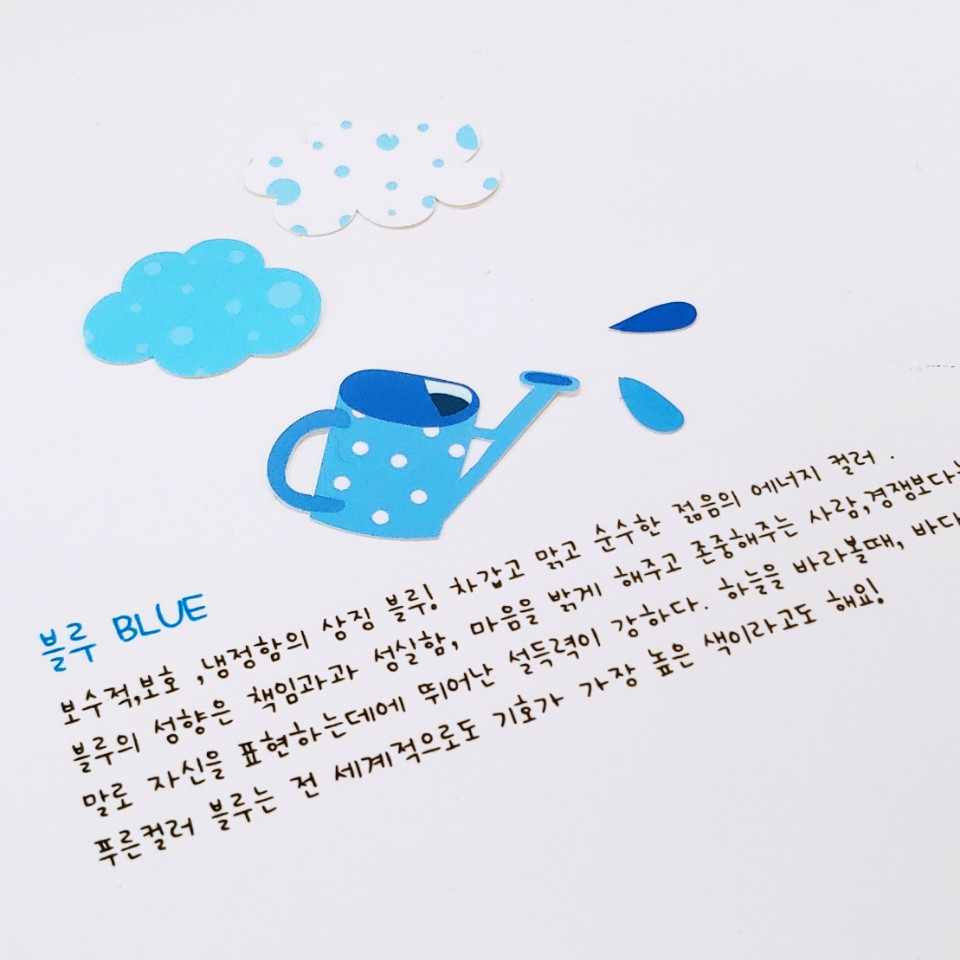 블루 BLUE
보수적,보호 ,냉정함의 상징 블루! 차갑고 맑고 순수한 젊음의 에너지 컬러 .
블루의 성향은 책임과과 성실함, 마음을 밝게 해주고 존중해주는 사람,경쟁보다는
말로 자신을 표현하는데에 뛰어난 설득력이 강하다. 하늘을 바라볼때, 바다
푸른컬러 블루는 전 세계적으로도 기호가 가장 높은 색이라고도 해요!